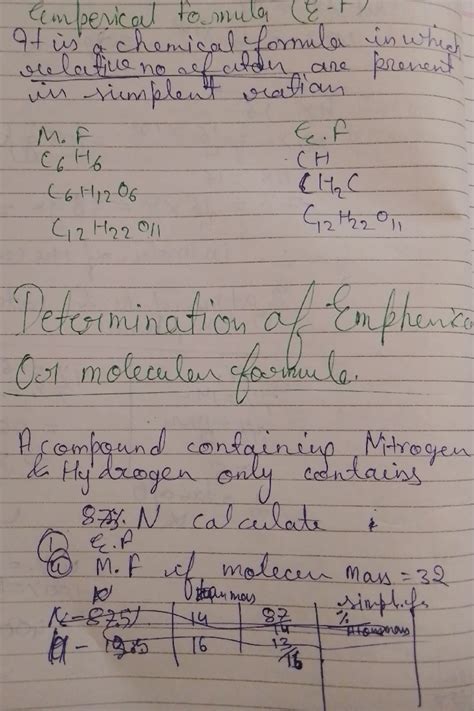 Emperical Formula (E.F)
It is a chemical formula in which
relative no of atom are present
in simplent ration
M.F E.F
C6H6 CH
C6H12O6 CH2C
C12H22O11 C12H22O11
Determination of Empherica
Or molecular formula.
A compound containing Nitrogen
& Hydrogen only contains
87.% N calculate
① E.F
② M.F if molecen mass = 32
% mass simplifs
N - 87.5% 14 87/14 %
H - 16 12/16